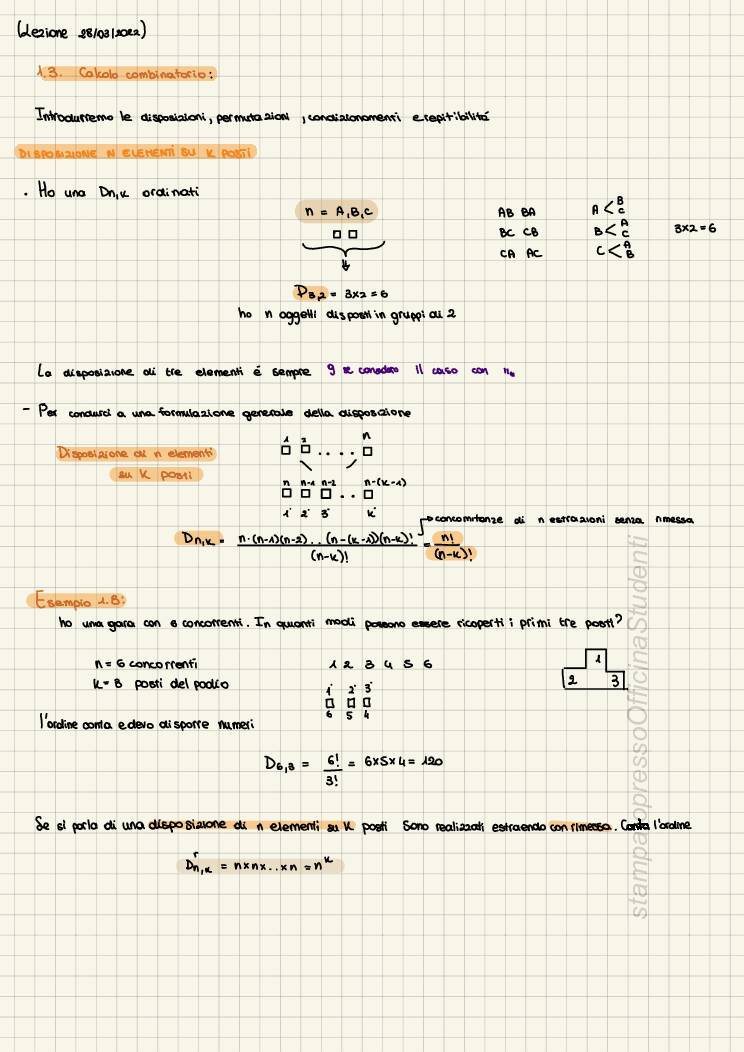 (Lezione 28/03/2022)
1.3. Calcolo combinatorio:
Introdurremo le disposizioni, permutazioni, condizionamenti e repitibilità
DISPOSIZIONE N ELEMENTI SU K POSTI
. Ho una Dn,k ordinati
n = A,B,C
AB BA
BC CB
CA AC
A < B C
B < A C
C < A B
3x2=6
D3,2 = 3x2=6
ho n oggetti disposti in gruppi di 2
La disposizione di tre elementi é sempre 9 se considero il caso con
- Per condurci a una formulazione generale della disposizione
Disposizione di n elementi
su K posti
1 2 .... n
n n-1 n-2 .. n-(k-1)
1° 2° 3° k°
concomitanze di n estrazioni senza rimessa
Dn,k = n·(n-1)(n-2)..(n-(k-1))(n-k)! / (n-k)! = n! / (n-k)!
Esempio 1.8:
ho una gara con 6 concorrenti. In quanti modi possono essere ricoperti i primi tre posti?
n=6 concorrenti
1 2 3 4 5 6
k=3 posti del podio
1° 2° 3°
6 5 4
1
2 3
l'ordine conta e devo disporre numeri
D6,3 = 6!/3! = 6x5x4=120
Se si parla di una disposizione di n elementi su K posti sono realizzati estraendo con rimessa. Conta l'ordine
Dʳn,k = nxnx..xn = nᵏ
stampato presso OfficinaStudenti